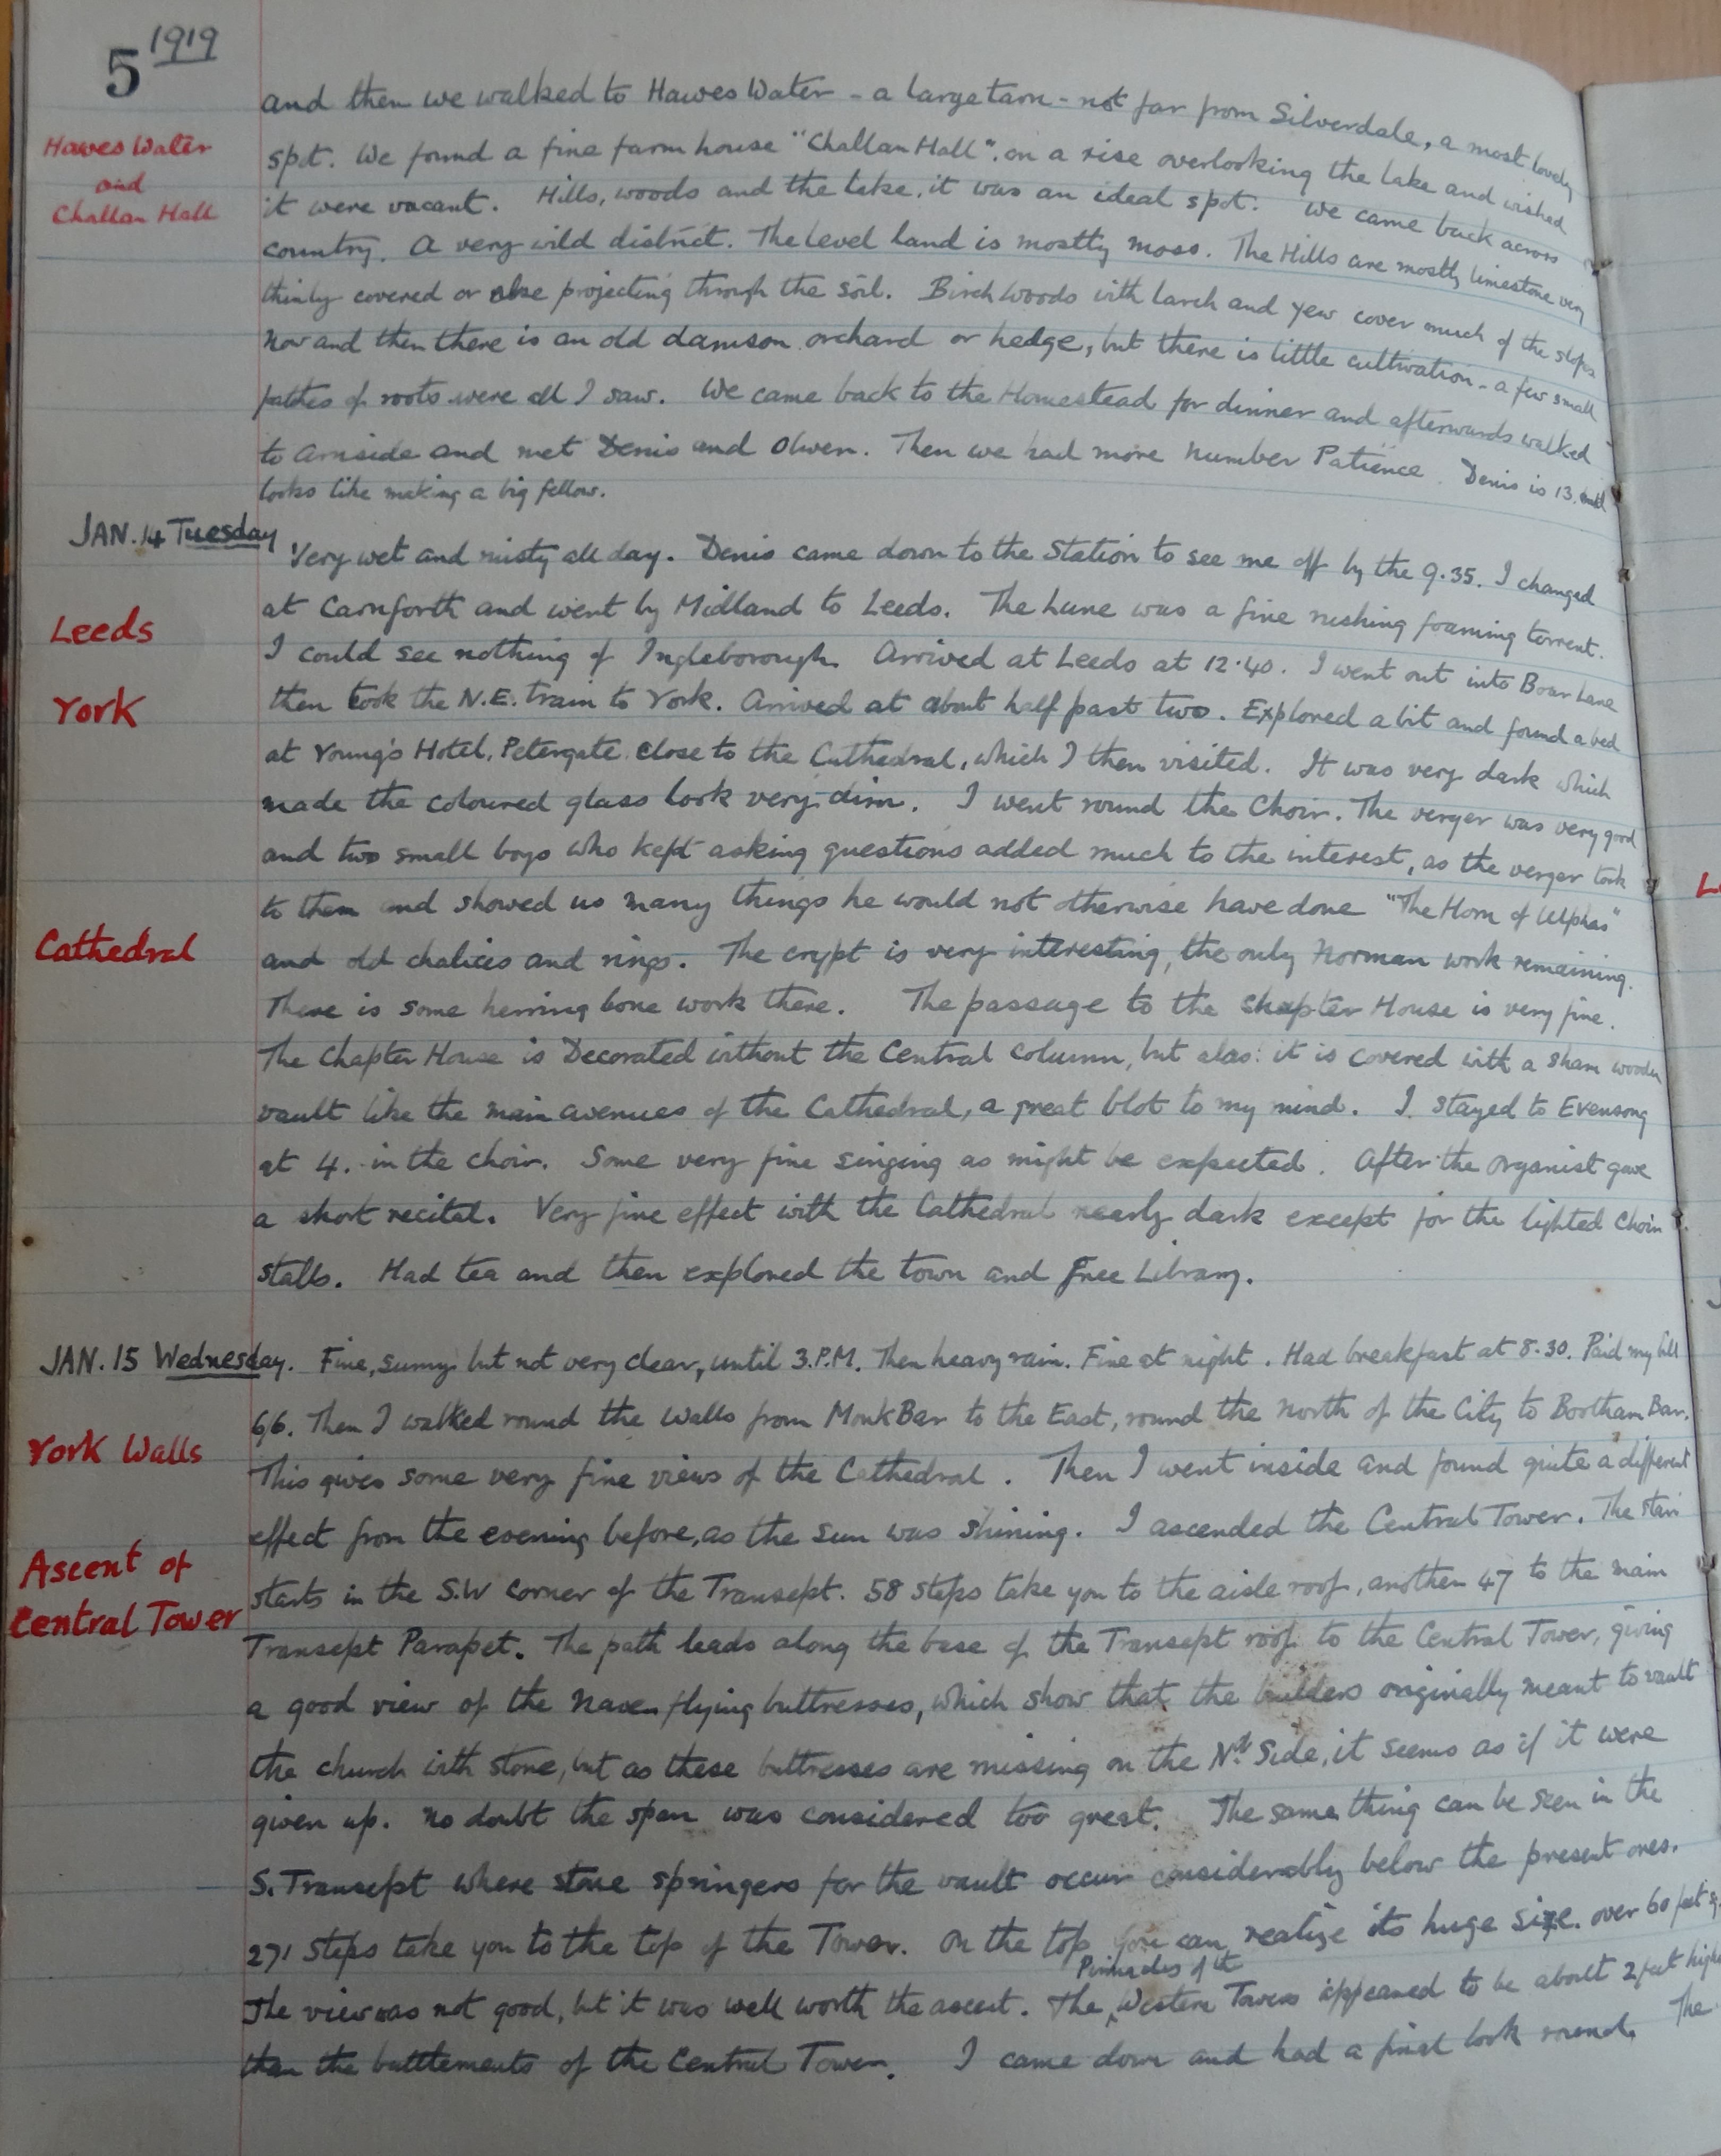 5 1919
and then we walked to Hawes Water - a large tarn - not far from Silverdale, a most lovely
Hawes Water
and
Challan Hall
spot. We found a fine farm house "Challan Hall", on a rise overlooking the lake and wished
it were vacant. Hills, woods and the lake, it was an ideal spot. We came back across
country. A very wild district. The level land is mostly moss. The Hills are mostly limestone very
thinly covered or else projecting through the soil. Birch woods with larch and yew cover much of the slopes
Now and then there is an old damson orchard or hedge, but there is little cultivation - a few small
patches of roots were all I saw. We came back to the Homestead for dinner and afterwards walked
to Arnside and met Denis and Olwen. Then we had more Number Patience. Denis is 13. and
looks like making a big fellow.
JAN. 14 Tuesday Very wet and misty all day. Denis came down to the Station to see me off by the 9.35. I changed
at Carnforth and went by Midland to Leeds. The Lune was a fine rushing foaming torrent.
Leeds
I could see nothing of Ingleborough. Arrived at Leeds at 12.40. I went out into Boar Lane
York
then took the N.E. train to York. Arrived at about half past two. Explored a bit and found a bed
at Young's Hotel, Petergate close to the Cathedral, which I then visited. It was very dark which
made the coloured glass look very dim. I went round the Choir. The verger was very good
and two small boys who kept asking questions added much to the interest, as the verger took
to them and showed us many things he would not otherwise have done "The Horn of Ulphas"
Cathedral
and old chalices and rings. The crypt is very interesting, the only Norman work remaining.
There is some herring bone work there. The passage to the Chapter House is very fine.
The Chapter House is Decorated without the Central column, but alas: it is covered with a sham wooden
vault like the main avenues of the Cathedral, a great blot to my mind. I stayed to Evensong
at 4. in the choir. Some very fine singing as might be expected. After the organist gave
a short recital. Very fine effect with the Cathedral nearly dark except for the lighted Choir
stalls. Had tea and then explored the town and Free Library.
JAN. 15 Wednesday. Fine, sunny but not very clear, until 3.P.M. Then heavy rain. Fine at night. Had breakfast at 8.30. Paid my bill
6/6. Then I walked round the Walls from Monk Bar to the East, round the North of the City to Bootham Bar.
York Walls
This gives some very fine views of the Cathedral. Then I went inside and found quite a different
effect from the evening before, as the sun was shining. I ascended the Central Tower. The stair
Ascent of
Central Tower
starts in the S.W corner of the Transept. 58 steps take you to the aisle roof, another 47 to the main
Transept Parapet. The path leads along the base of the Transept roof to the Central Tower, giving
a good view of the Nave flying buttresses, which show that the builders originally meant to vault
the church with stone, but as these buttresses are missing on the Nth Side, it seems as if it were
given up. No doubt the span was considered too great. The same thing can be seen in the
S. Transept where stone springers for the vault occur considerably below the present ones.
271 steps take you to the top of the Tower. On the top you can realize its huge size. over 60 feet sq.
The view was not good, but it was well worth the ascent. The Pinnacles of the Western Towers appeared to be about 2 feet higher
than the battlements of the Central Tower. I came down and had a final look round. The